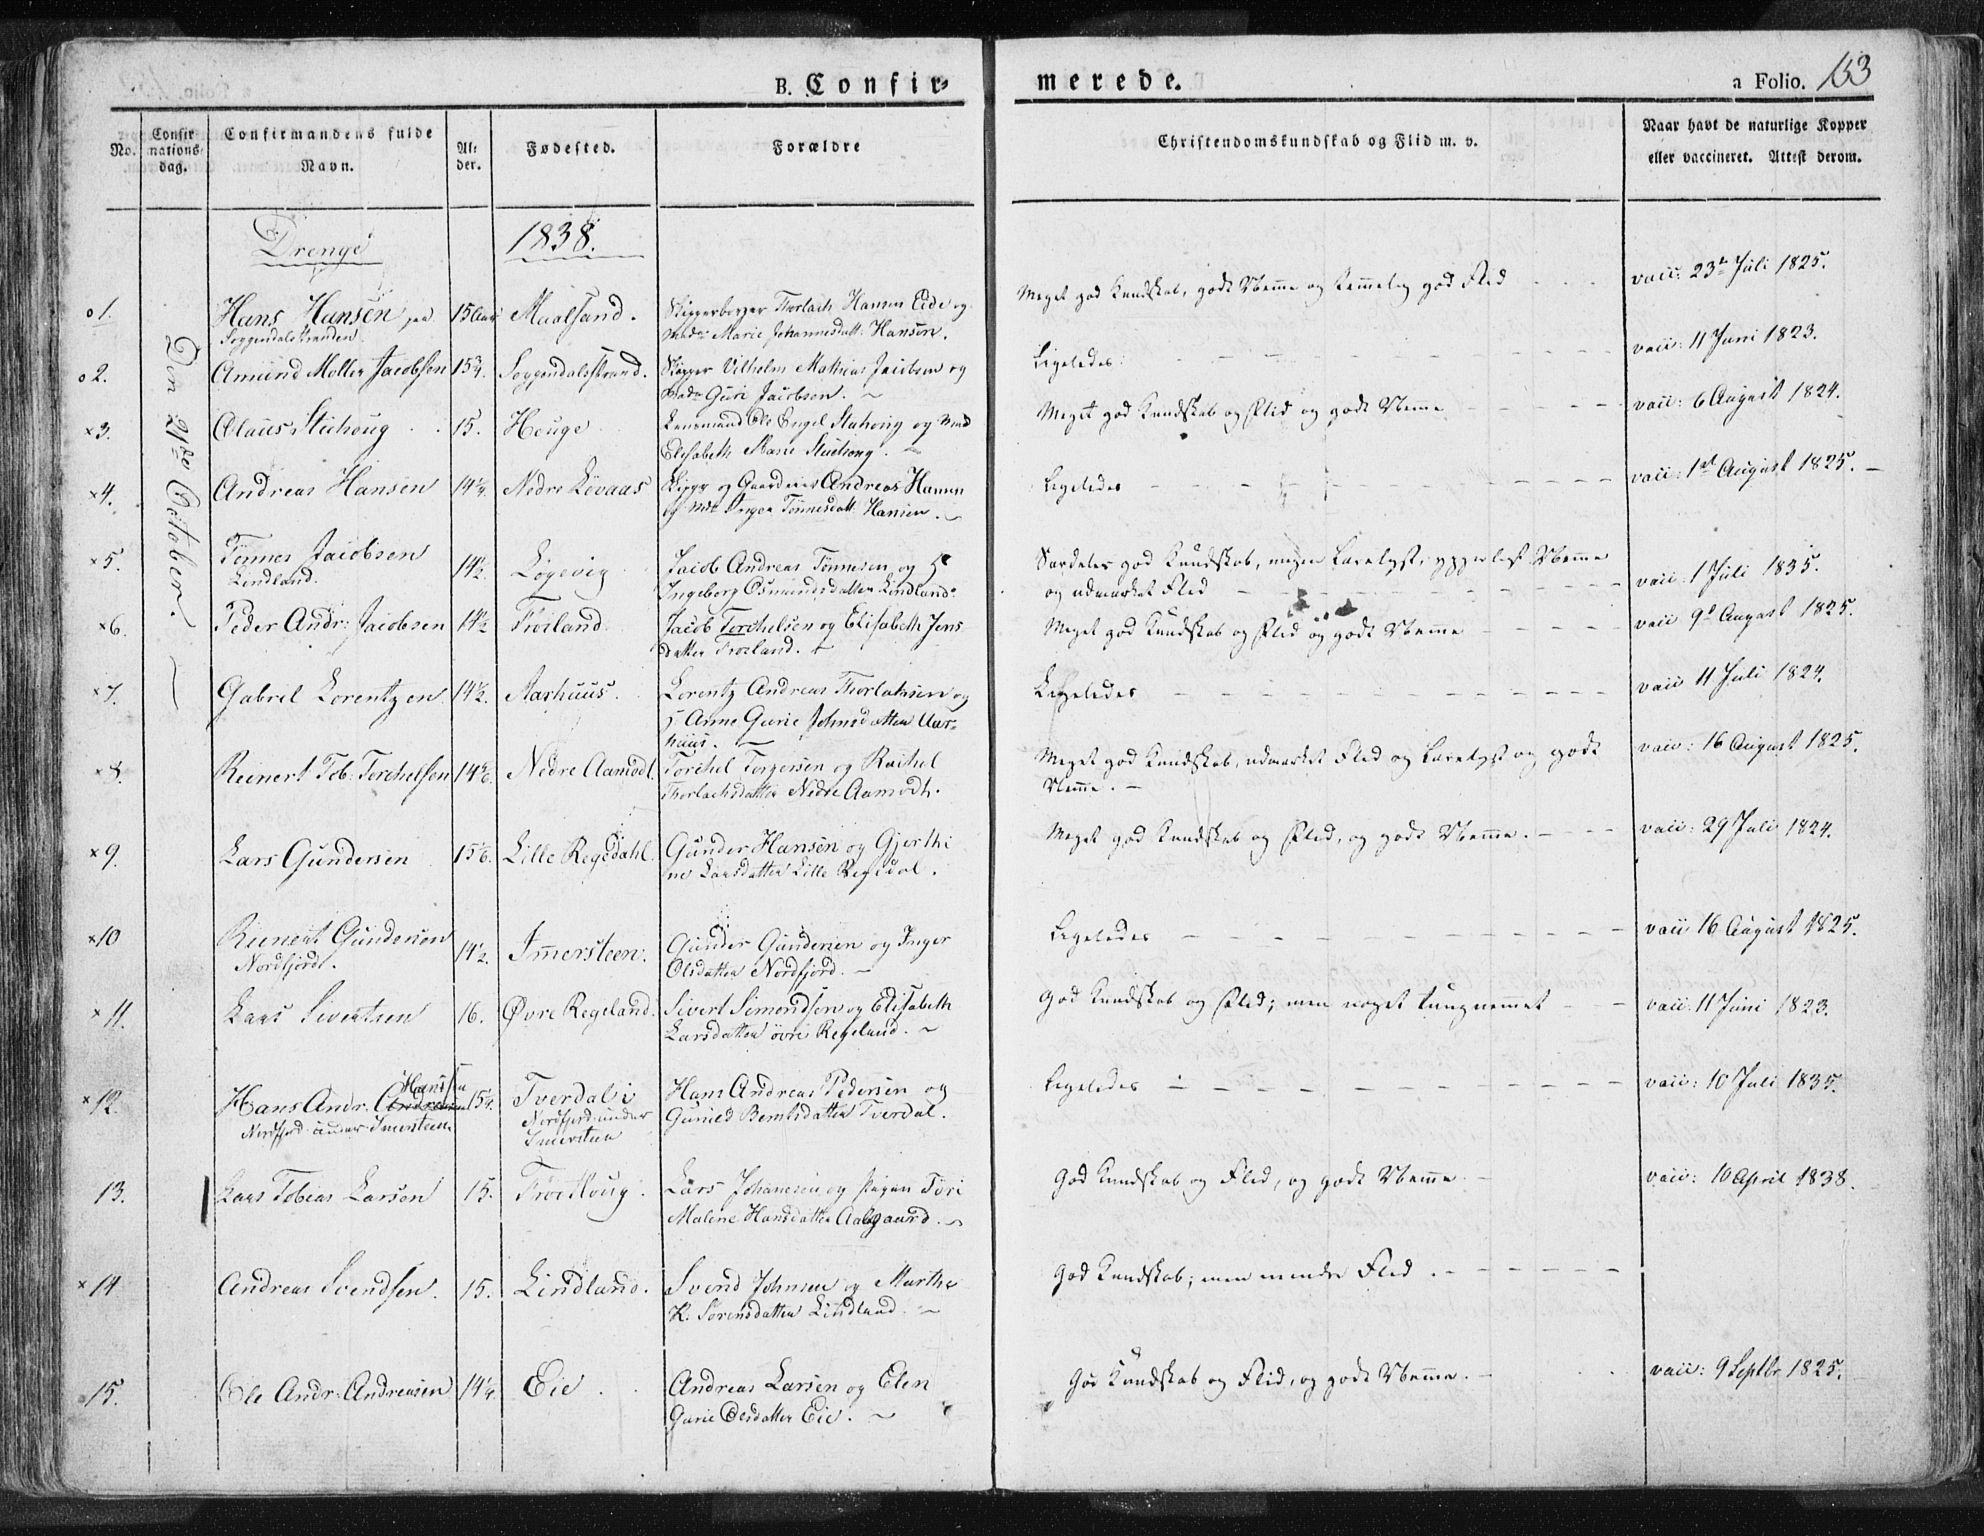 B. Confir-
merede.
a Folio. 163
No.
Confir
nations-
dag.
Confirmandens fulde
Navn.
Al-
der.
Fødested.
Forældre
Christendomskundskab og Flid m. v.
Naar havt de naturlige Kopper
eller vaccineret. Attest derom.
Drenge
1838.
Den 21de October.
o 1.
Hans Hansen paa
Soggendalstranden
15 Aar
Maalsand.
Skipperborger Thorlach Hansen Eide og
Mad. Marie Johannesdatt. Hansen.
Meget god Kundskab, godt Nemme og temmelig god Flid
vacc: 23de Juli 1825.
o 2.
Amund Møller Jacobsen
15 3/4.
Soggendalsstrand.
Skipper Vilhelm Mathias Jacobsen og
Mad. Guri Jacobsen.
Ligeledes
vacc: 11 Juni 1823.
x 3.
Claus Stuhoug
15.
Houge
Lensmand Ole Engel Stuhoug og Mad
Elisabeth Marie Stuhoug.
Meget god Kundskab og Flid og godt Nemme
vacc: 6 August 1824.
x 4.
Andreas Hansen
14 1/4.
Nedre Løvaas
og Gaardeier Andreas Hansen
og Mad. Inger Tønnesdatt. Hansen.
Ligeledes
vacc: 1st August 1825.
x 5.
Tønnes Jacobsen
Lindland.
14 1/2.
Løgevig
Jacob Andreas Tønnesen og
Ingeborg Osmundsdatter Lindland.
Særdeles god Kundskab, megen Lærelyst, ypperligt Nemme
og udmærket Flid
vacc: 1 Juli 1835.
x 6.
Peder Andr: Jacobsen
14 1/2
Frøiland
Jacob Torchelsen og Elisabeth Jens
datter Frøiland.
Meget god Kundskab og Flid og godt Nemme
vacc 9d August 1825.
x 7.
Gabriel Lorentzen
14 1/2.
Aarhuus.
Lorentz Andreas Thorlaksen og
Anne Gurie Johnsdatter Aar-
huus.
Ligeledes
vacc 11 Juli 1824.
x 8.
Reinert Tob: Torchelsen
14 1/6.
Nedre Aamodt.
Torchel Torgersen og Rachel
Thorlachsdatter Nedre Aamodt.
Meget god Kundskab, udmærket Flid og Lærelyst og godt
Nemme.
vacc: 16 August 1825.
x 9.
Lars Gundersen
15 1/6.
Lille Regedahl.
Gunder Hansen og Gjerthi
ne Larsdatter Lille Regedal.
Meget god Kundskab og Flid, og godt Nemme.
vacc: 29 Juli 1824.
x 10
Reinert Gundersen
Nordfjord.
14 1/2.
Immersteen.
Gunder Gundersen og Inger
Olsdatter Nordfjord.
Ligeledes
vacc 16 August 1825.
x 11.
Lars Sivertsen
16.
Øvre Regeland.
Sivert Simondsen og Elisabeth
Larsdatter øvre Regeland.
God Kundskab og Flid; men noget tungnemmet
vacc: 11 Juni 1823.
x 12.
Hansen
Hans Andr. Andreasen
Nordfjord under Imersteen
15 1/4.
Tverdal i
Nordfjord under
Imersteen
Hans Andreas Pedersen og
Guried Berntsdatter Tverdal.
Ligeledes
vacc: 10 Juli 1835.
13.
Lars Tobias Larsen
15.
Frøithoug.
Lars Johanesen og Pigen Tøri
Malene Hansdatter Aabgaard.
God Kundskab og Flid, og godt Nemme
vacc: 10 April 1838.
x 14
Andreas Svendsen.
15.
Lindland.
Svend Johnsen og Marthe
K. Sørensdatter Lindland.
God Kundskab; men mindre Flid.
15.
Ole Andr: Andreasen
14 1/4.
Eie
Andreas Larsen og Elen
Gurie Olesdatter Eie.
God Kundskab og Flid, og godt Nemme.
vacc: 9 Septbr 1825.